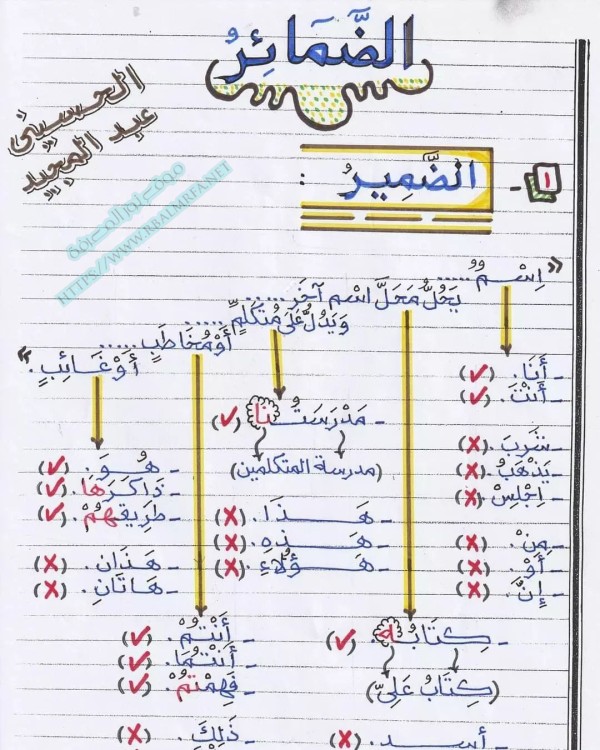 الضَّمَائِرُ
الحسيني
عبد المجيد
HTTPS//WWW.RBALMRFA.NET
١ - الضَّمِيرُ :
« اِسْمٌ .....
يَحُلُّ مَحَلَّ اسْمٍ آخَرَ .....
وَيَدُلُّ عَلَى مُتَكَلِّمٍ .....
أَوْ مُخَاطَبٍ .....
أَوْ غَائِبٍ. »
- أَنَا. (✓)
- أَنْتَ. (✓)
- شَرِبَ. (✗)
- يَذْهَبُ. (✗)
- اِجْلِسْ. (✗)
- مِنْ. (✗)
- أَوْ. (✗)
- إِنَّ. (✗)
- كِتَابُهُ. (✓)
(كِتَابُ عَلِيٍّ)
- أسد. (✗)
- مَدْرَسَتُنَا (✓)
(مدرسة المتكلمين)
- هَذَا. (✗)
- هَذِهِ. (✗)
- هَؤُلَاءِ. (✗)
- أَنْتُمْ. (✓)
- أَنْتُمَا. (✓)
- فَهِمْتُمْ. (✓)
- ذَلِكَ. (✗)
- هُوَ. (✓)
- ذَاكَرَهَا. (✓)
- طَرِيقُهُمْ. (✓)
- هَذَانِ. (✗)
- هَاتَانِ. (✗)